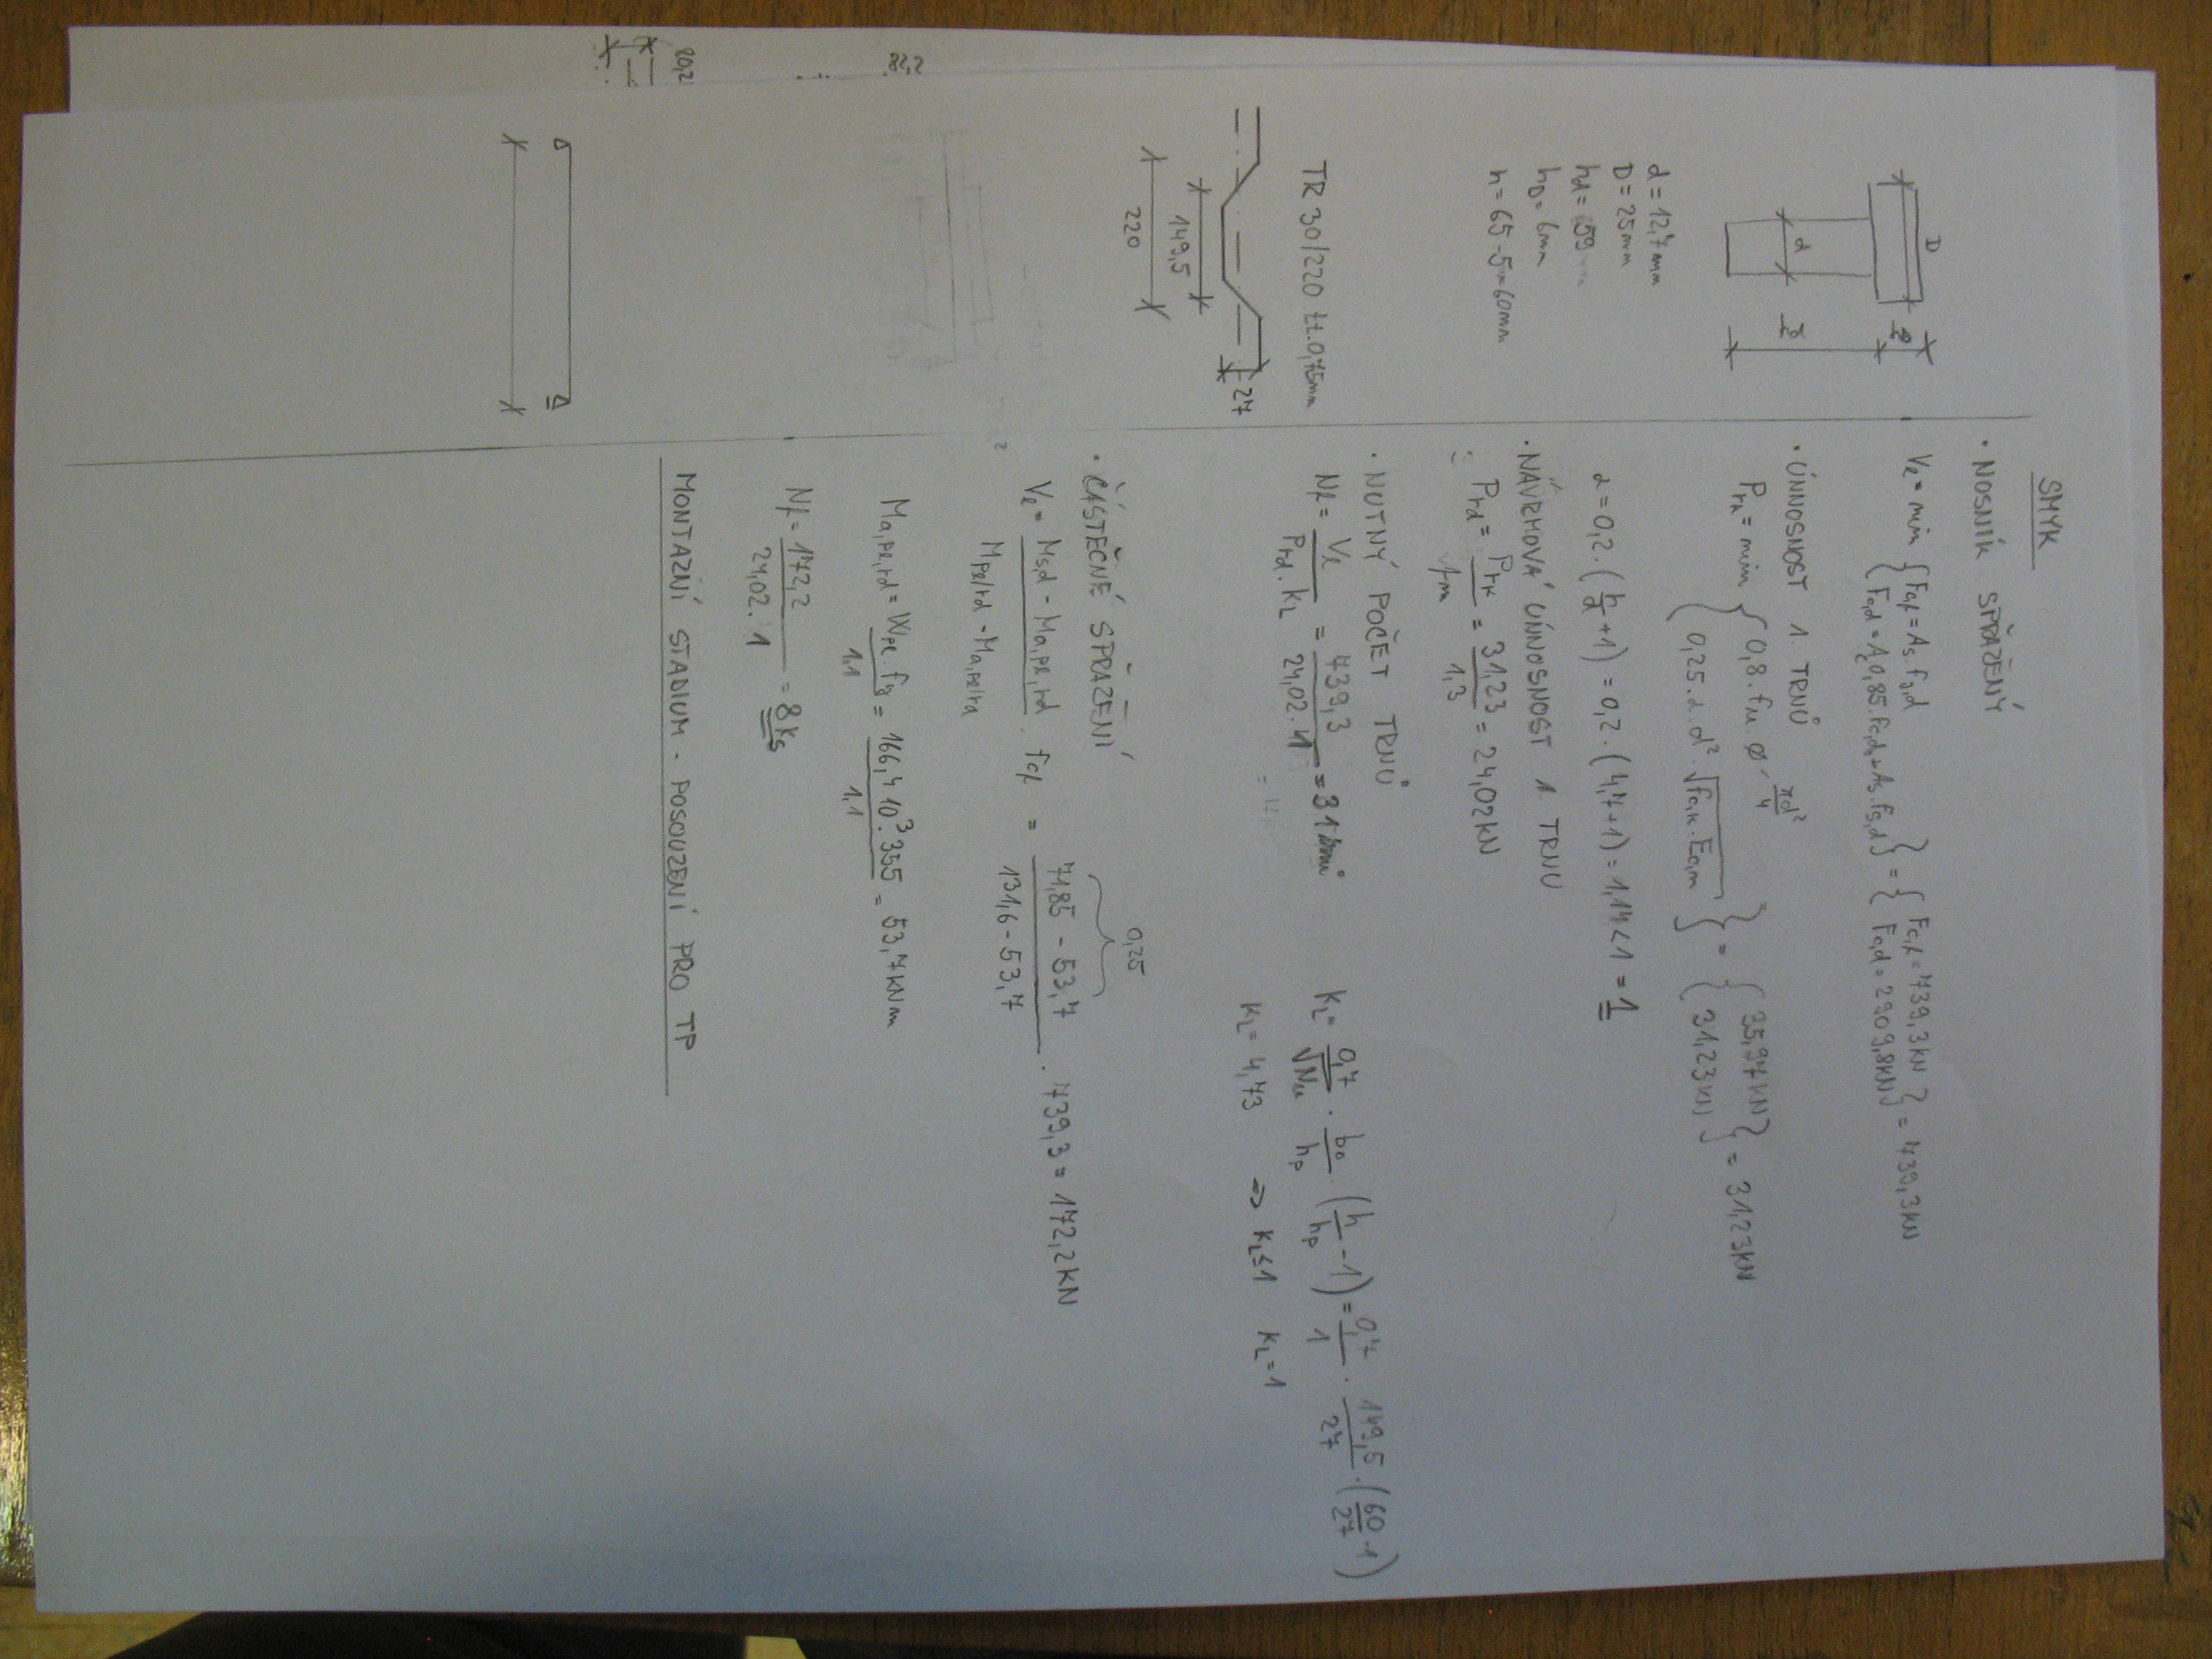 SMYK
· NOSNÍK SPŘAŽENÝ
Vℓ = min { Fcf = As.fy,d
Fc,d = Ac.0,85.fc,d + As.fs,d } = { Fc,f = 739,3 kN
Fc,d = 2909,8kN } = 739,3 kN
· ÚNNOSNOST 1 TRNŮ
Prk = min { 0,8.fu.ø. πd²/4
0,25.α.d².√fc,k.Ec,m } = { 35,97kN
31,23kN } = 31,23kN
α = 0,2.(h/d+1) = 0,2.(4,7+1) = 1,14 < 1 = 1
· NÁVRHOVÁ ÚNNOSNOST 1. TRNU
Prd = Prk/γm = 31,23/1,3 = 24,02kN
· NUTNÝ POČET TRNŮ
Nf = Vℓ/Prd.kL = 739,3/24,02.1 = 31
kL = 0,7/√Nr . b0/hp . (h/hp -1) = 0,7/1 . 149,5/27 . (60/27 -1)
kL = 4,73 => kL≤1 kL=1
· ČÁSTEČNÉ SPŘAŽENÍ
0,25
Vℓ = Ms,d - Ma,pl,rd / Mpl,rd - Ma,pl,rd . Fcf = 71,85 - 53,7 / 131,6 - 53,7 . 739,3 = 172,2 kN
Ma,pl,rd = Wpl.fy/1,1 = 166,4 10³.355/1,1 = 53,7kNm
Nf = 172,2/24,02.1 = 8ks
MONTAZNÍ STADIUM - POSOUZENÍ PRO TP
D
d
hD
hd
d = 12,7mm
D = 25mm
hd = 59
hD = 6mm
h = 65-5=60mm
TR 30/220 tl.0,75mm
27
149,5
220
82,2
80,2